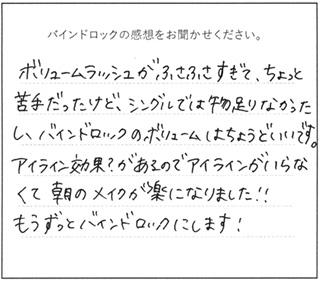 バインドロックの感想をお聞かせください。
ボリュームラッシュがふさふさすぎて、ちょっと
苦手だったけど、シングルでは物足りなかった
し、バインドロックのボリュームはちょうどいいです。
アイライン効果?があるのでアイラインがいらな
くて朝のメイクが楽になりました!!
もうずっとバインドロックにします!